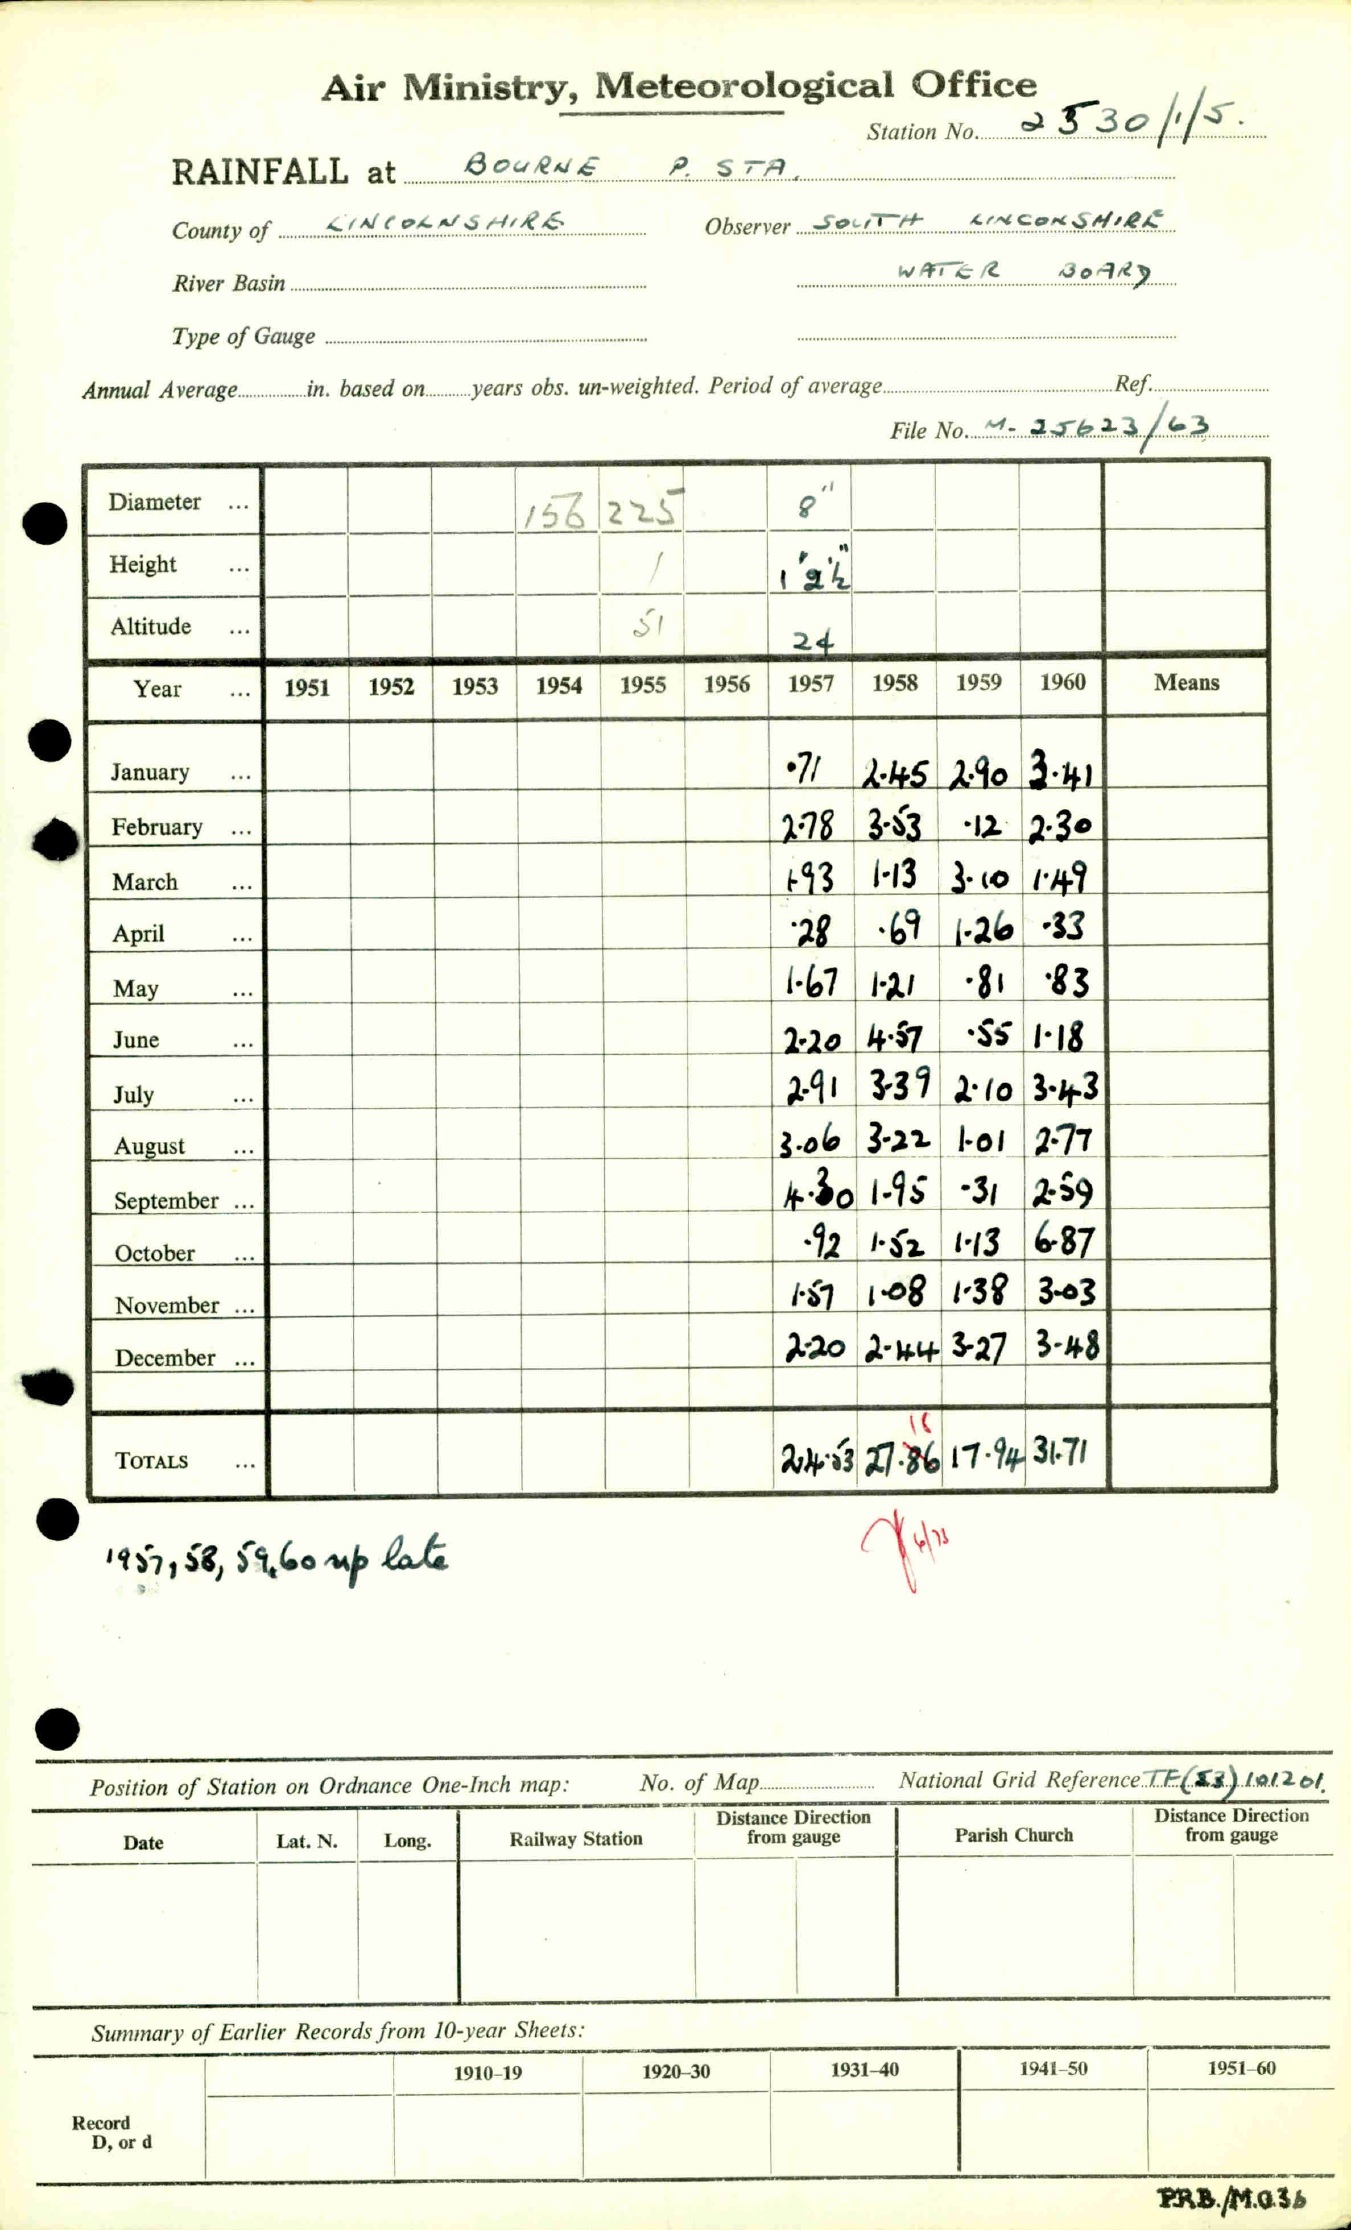 Air Ministry, Meteorological Office
Station No. 2530/1/5.
RAINFALL at BOURNE P. STA.
County of LINCOLNSHIRE Observer SOUTH LINCONSHIRE
River Basin WATER BOARD
Type of Gauge
Annual Average in. based on years obs. un-weighted. Period of average Ref.
File No. M-25623/63
Diameter ... 156 225 8"
Height ... 1 1'2½"
Altitude ... 51 24
Year ... 1951 1952 1953 1954 1955 1956 1957 1958 1959 1960 Means
January ... ·71 2·45 2·90 3·41
February ... 2·78 3·53 ·12 2·30
March ... 1·93 1·13 3·10 1·49
April ... ·28 ·69 1·26 ·33
May ... 1·67 1·21 ·81 ·83
June ... 2·20 4·57 ·55 1·18
July ... 2·91 3·39 2·10 3·43
August ... 3·06 3·22 1·01 2·77
September ... 4·30 1·95 ·31 2·59
October ... ·92 1·52 1·13 6·87
November ... 1·57 1·08 1·38 3·03
December ... 2·20 2·44 3·27 3·48
18
TOTALS ... 24·53 27·86 17·94 31·71
6/73
1957, 58, 59, 60 up late
Position of Station on Ordnance One-Inch map: No. of Map National Grid Reference TF(53)101201.
Date Lat. N. Long. Railway Station Distance Direction from gauge Parish Church Distance Direction from gauge
Summary of Earlier Records from 10-year Sheets:
1910–19 1920–30 1931–40 1941–50 1951–60
Record
D, or d
P.R.B./M.O.3b